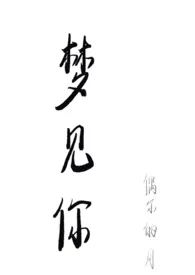 梦见你
偶尔的月